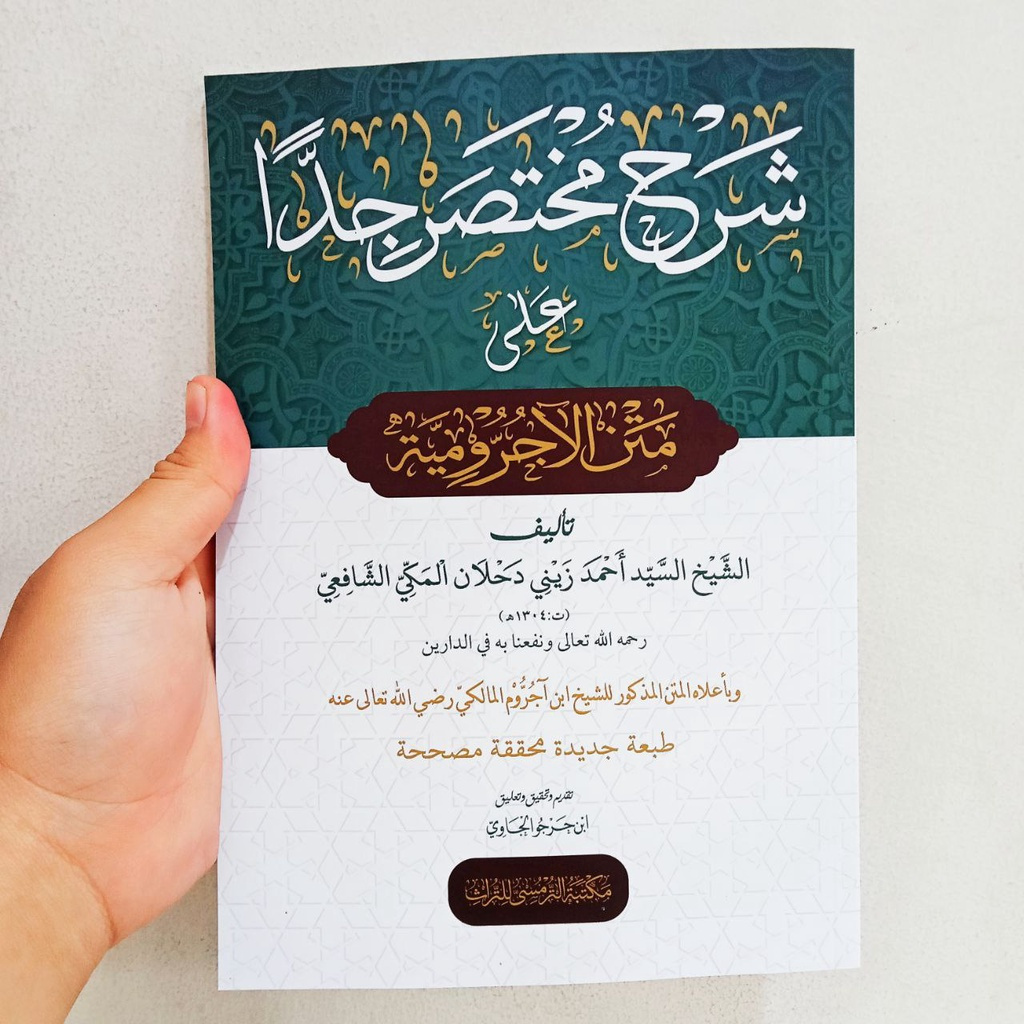 شَرْح مُخْتَصَر جِدًّا
عَلَى
مَتْن الآجُرُّومِيَّة
تأليف
الشَّيْخ السَّيِّد أَحْمَدَ زَيْنِي دَحْلَان الْمَكِّيّ الشَّافِعِيّ
(ت:١٣٠٤هـ)
رحمه الله تعالى ونفعنا به في الدارين
وبأعلاه المتن المذكور للشيخ ابن آجُرُّوْم المالكيّ رضي الله تعالى عنه
طبعة جديدة محققة مصححة
تقديم وتحقيق وتعليق
ابن حَرْجُو الْجَاوِيّ
مَكْتَبَةُ التُّرْمُسِي لِلتُّرَاثِ